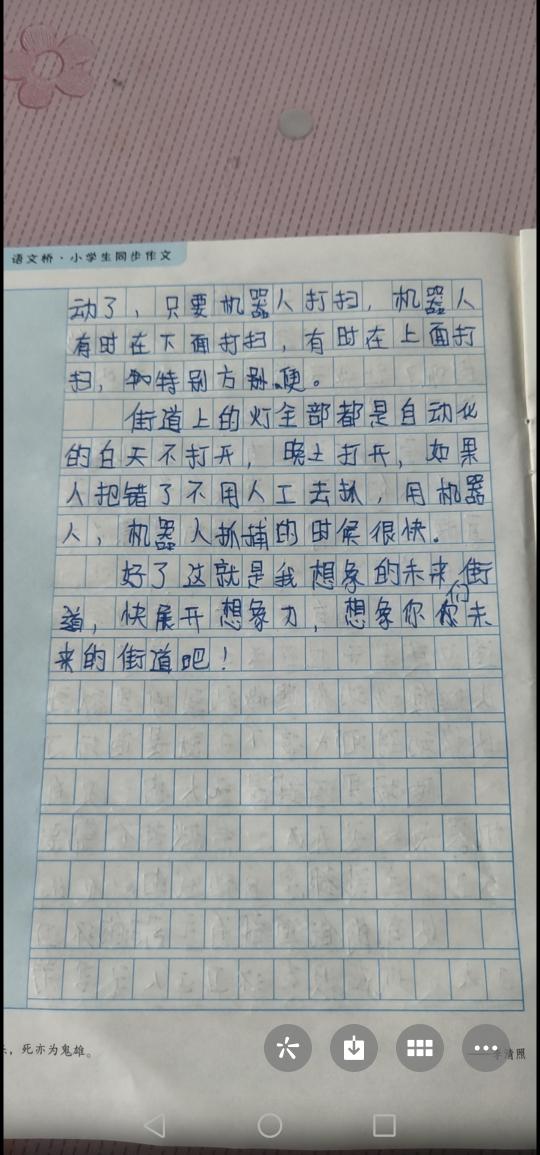 语文桥·小学生同步作文
动了，只要机器人打扫，机器人
有时在下面打扫，有时在上面打
扫，特别方便。
街道上的灯全部都是自动化
的白天不打开，晚上打开，如果
人把错了不用人工去抓，用机器
人，机器人抓捕的时候很快。
好了这就是我想象的未来街
道，快展开想象力，想象你们未
来的街道吧！
，死亦为鬼雄。
李清照